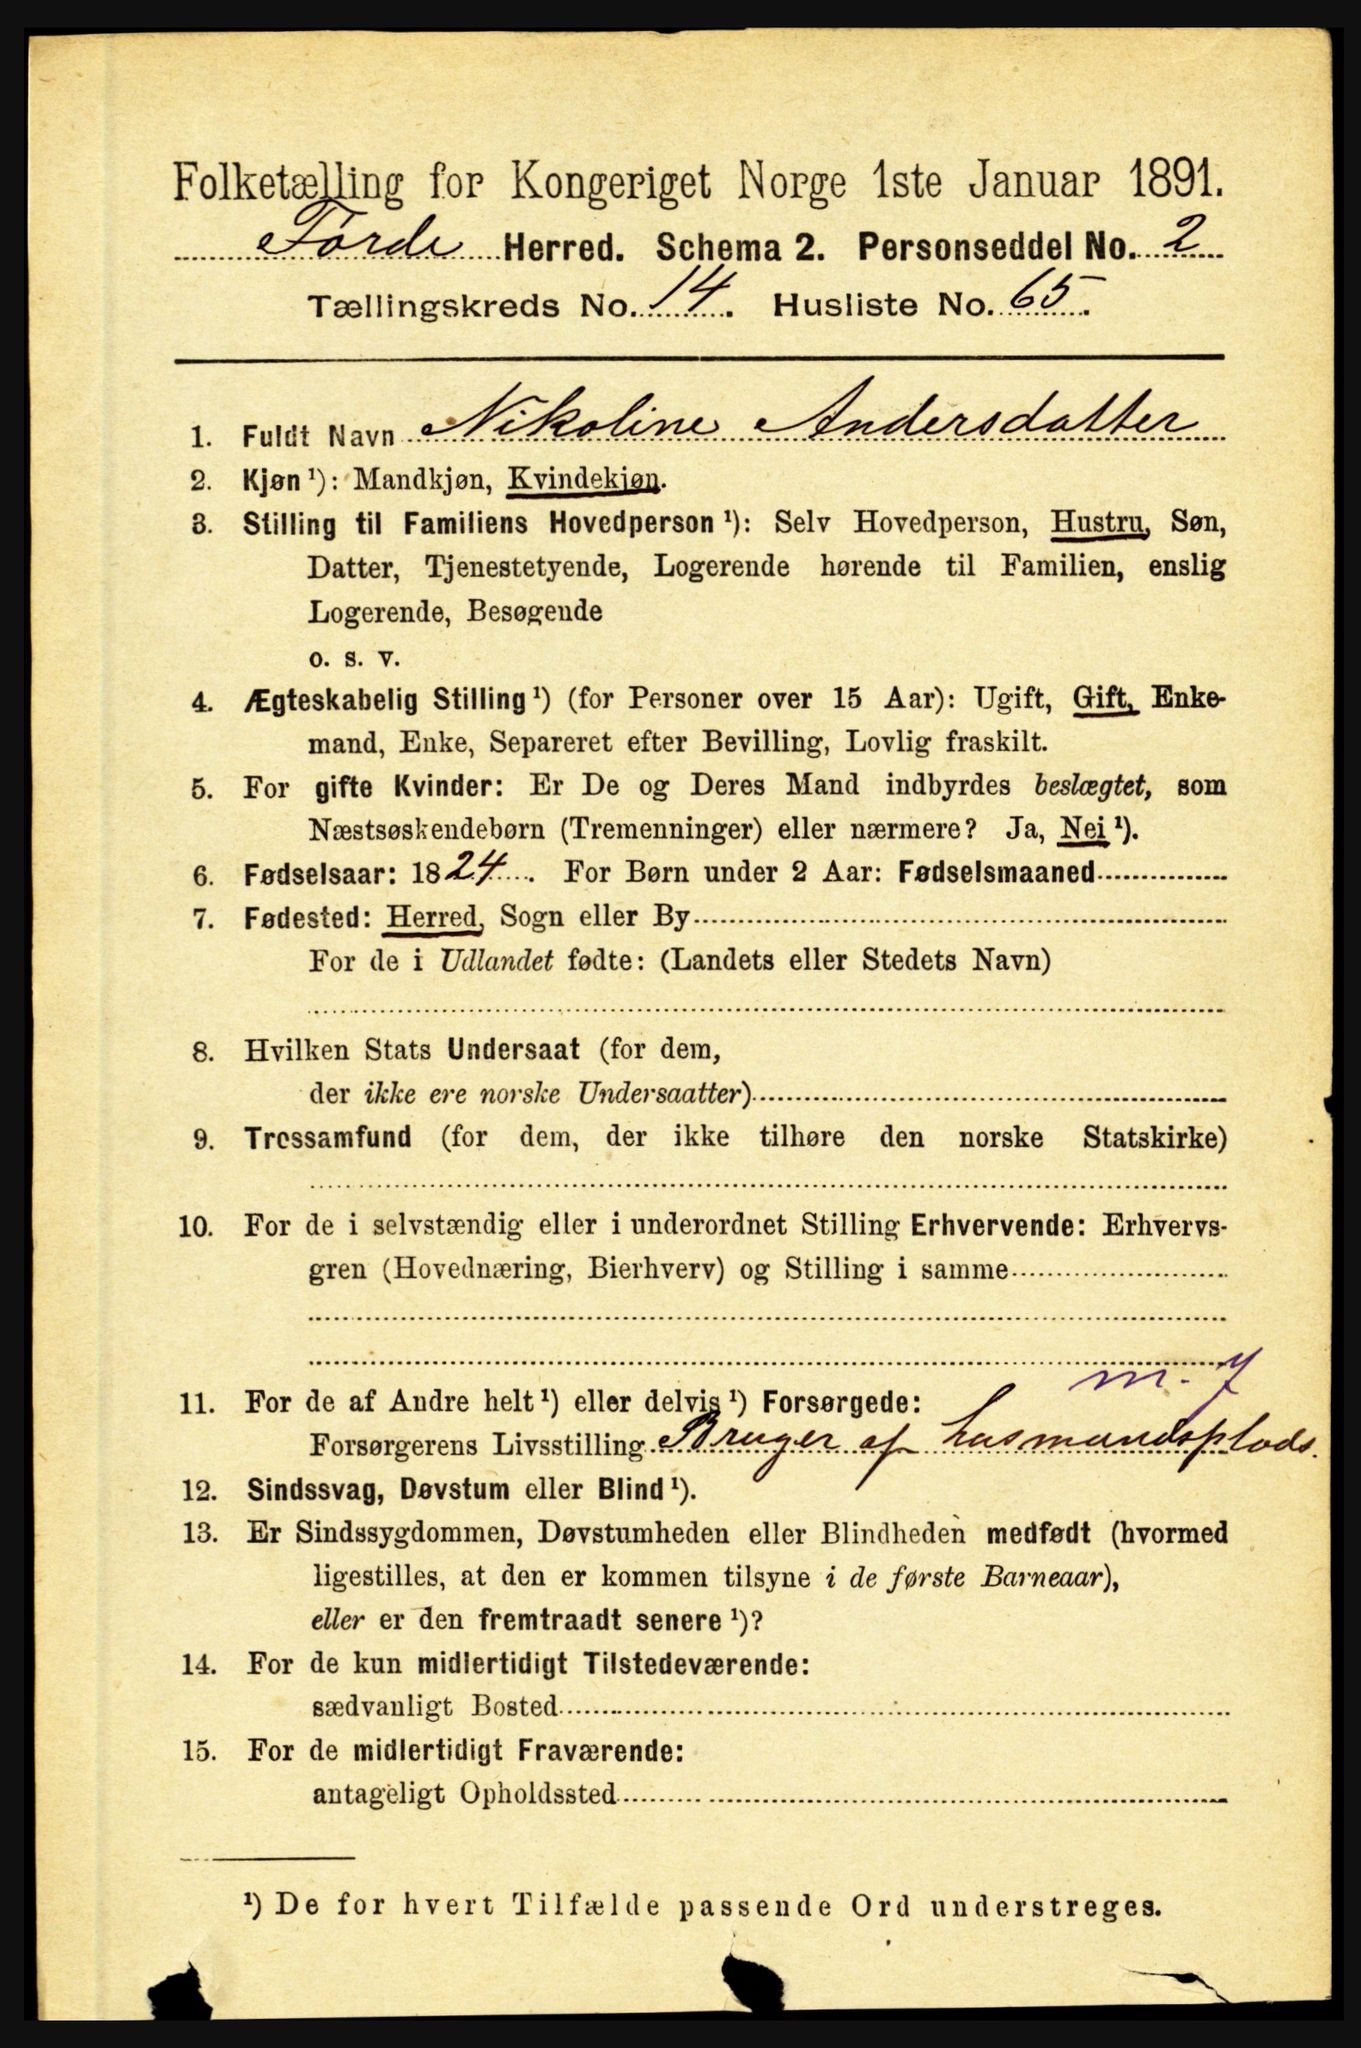 Folketælling for Kongeriget Norge 1ste Januar 1891.
Førde Herred. Schema 2. Personseddel No. 2
Tællingskreds No. 14. Husliste No. 65.
1. Fuldt Navn Nikoline Andersdatter
2. Kjøn¹): Mandkjøn, Kvindekjøn.
3. Stilling til Familiens Hovedperson¹): Selv Hovedperson, Hustru, Søn,
Datter, Tjenestetyende, Logerende hørende til Familien, enslig
Logerende, Besøgende
o. s. v.
4. Ægteskabelig Stilling¹) (for Personer over 15 Aar): Ugift, Gift, Enke-
mand, Enke, Separeret efter Bevilling, Lovlig fraskilt.
5. For gifte Kvinder: Er De og Deres Mand indbyrdes beslægtet, som
Næstsøskendebørn (Tremenninger) eller nærmere? Ja, Nei¹).
6. Fødselsaar: 1824. For Børn under 2 Aar: Fødselsmaaned
7. Fødested: Herred, Sogn eller By
For de i Udlandet fødte: (Landets eller Stedets Navn)
8. Hvilken Stats Undersaat (for dem,
der ikke ere norske Undersaatter)
9. Trossamfund (for dem, der ikke tilhøre den norske Statskirke)
10. For de i selvstændig eller i underordnet Stilling Erhvervende: Erhvervs-
gren (Hovednæring, Bierhverv) og Stilling i samme
m. 7
11. For de af Andre helt¹) eller delvis¹) Forsørgede:
Forsørgerens Livsstilling Bruger af husmandsplads.
12. Sindssvag, Døvstum eller Blind¹).
13. Er Sindssygdommen, Døvstumheden eller Blindheden medfødt (hvormed
ligestilles, at den er kommen tilsyne i de første Barneaar),
eller er den fremtraadt senere¹)?
14. For de kun midlertidigt Tilstedeværende:
sædvanligt Bosted
15. For de midlertidigt Fraværende:
antageligt Opholdssted
¹) De for hvert Tilfælde passende Ord understreges.